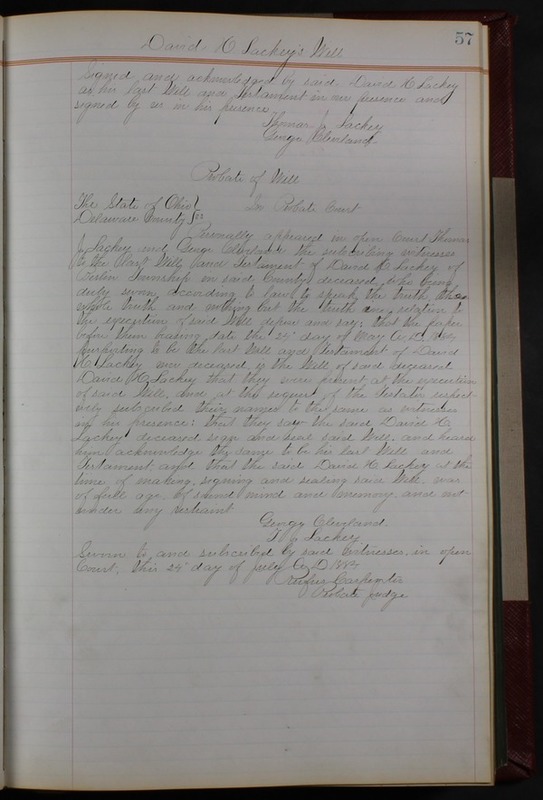 57
David H. Lackey's Will
Signed and acknowledged by said David H Lackey
as his last Will and Testament in our presence and
signed by us in his presence
Thomas J. Lackey
George Cleveland
Probate of Will
The State of Ohio }
Delaware County } ss In Probate Court
Personally appeared in open Court Thomas
J. Lackey and George Cleveland the subscribing witnesses
to the last Will and Testament of David H. Lackey of
Township in said County deceased, who being
duly sworn according to law to speak the truth the
whole truth and nothing but the truth in relation to
the execution of said Will depose and say: that the paper
before them bearing date the 24" day of May A. D.
purporting to be the last Will and Testament of David
H. Lackey now deceased is the Will of said deceased
David H. Lackey that they were present at the execution
of said Will, and at the request of the Testator respect-
ively subscribed their names to the same as witnesses
in his presence: that they saw the said David H.
Lackey deceased sign and seal said Will, and heard
him acknowledge the same to be his last Will and
Testament and that the said David H. Lackey at the
time of making, signing and sealing said Will, was
of full age, of sound mind and memory, and not
under any restraint
George Cleveland
T. J. Lackey
Sworn to and subscribed by said witnesses, in open
Court, this 24" day of July A. D.
Rufus Carpenter
Probate Judge